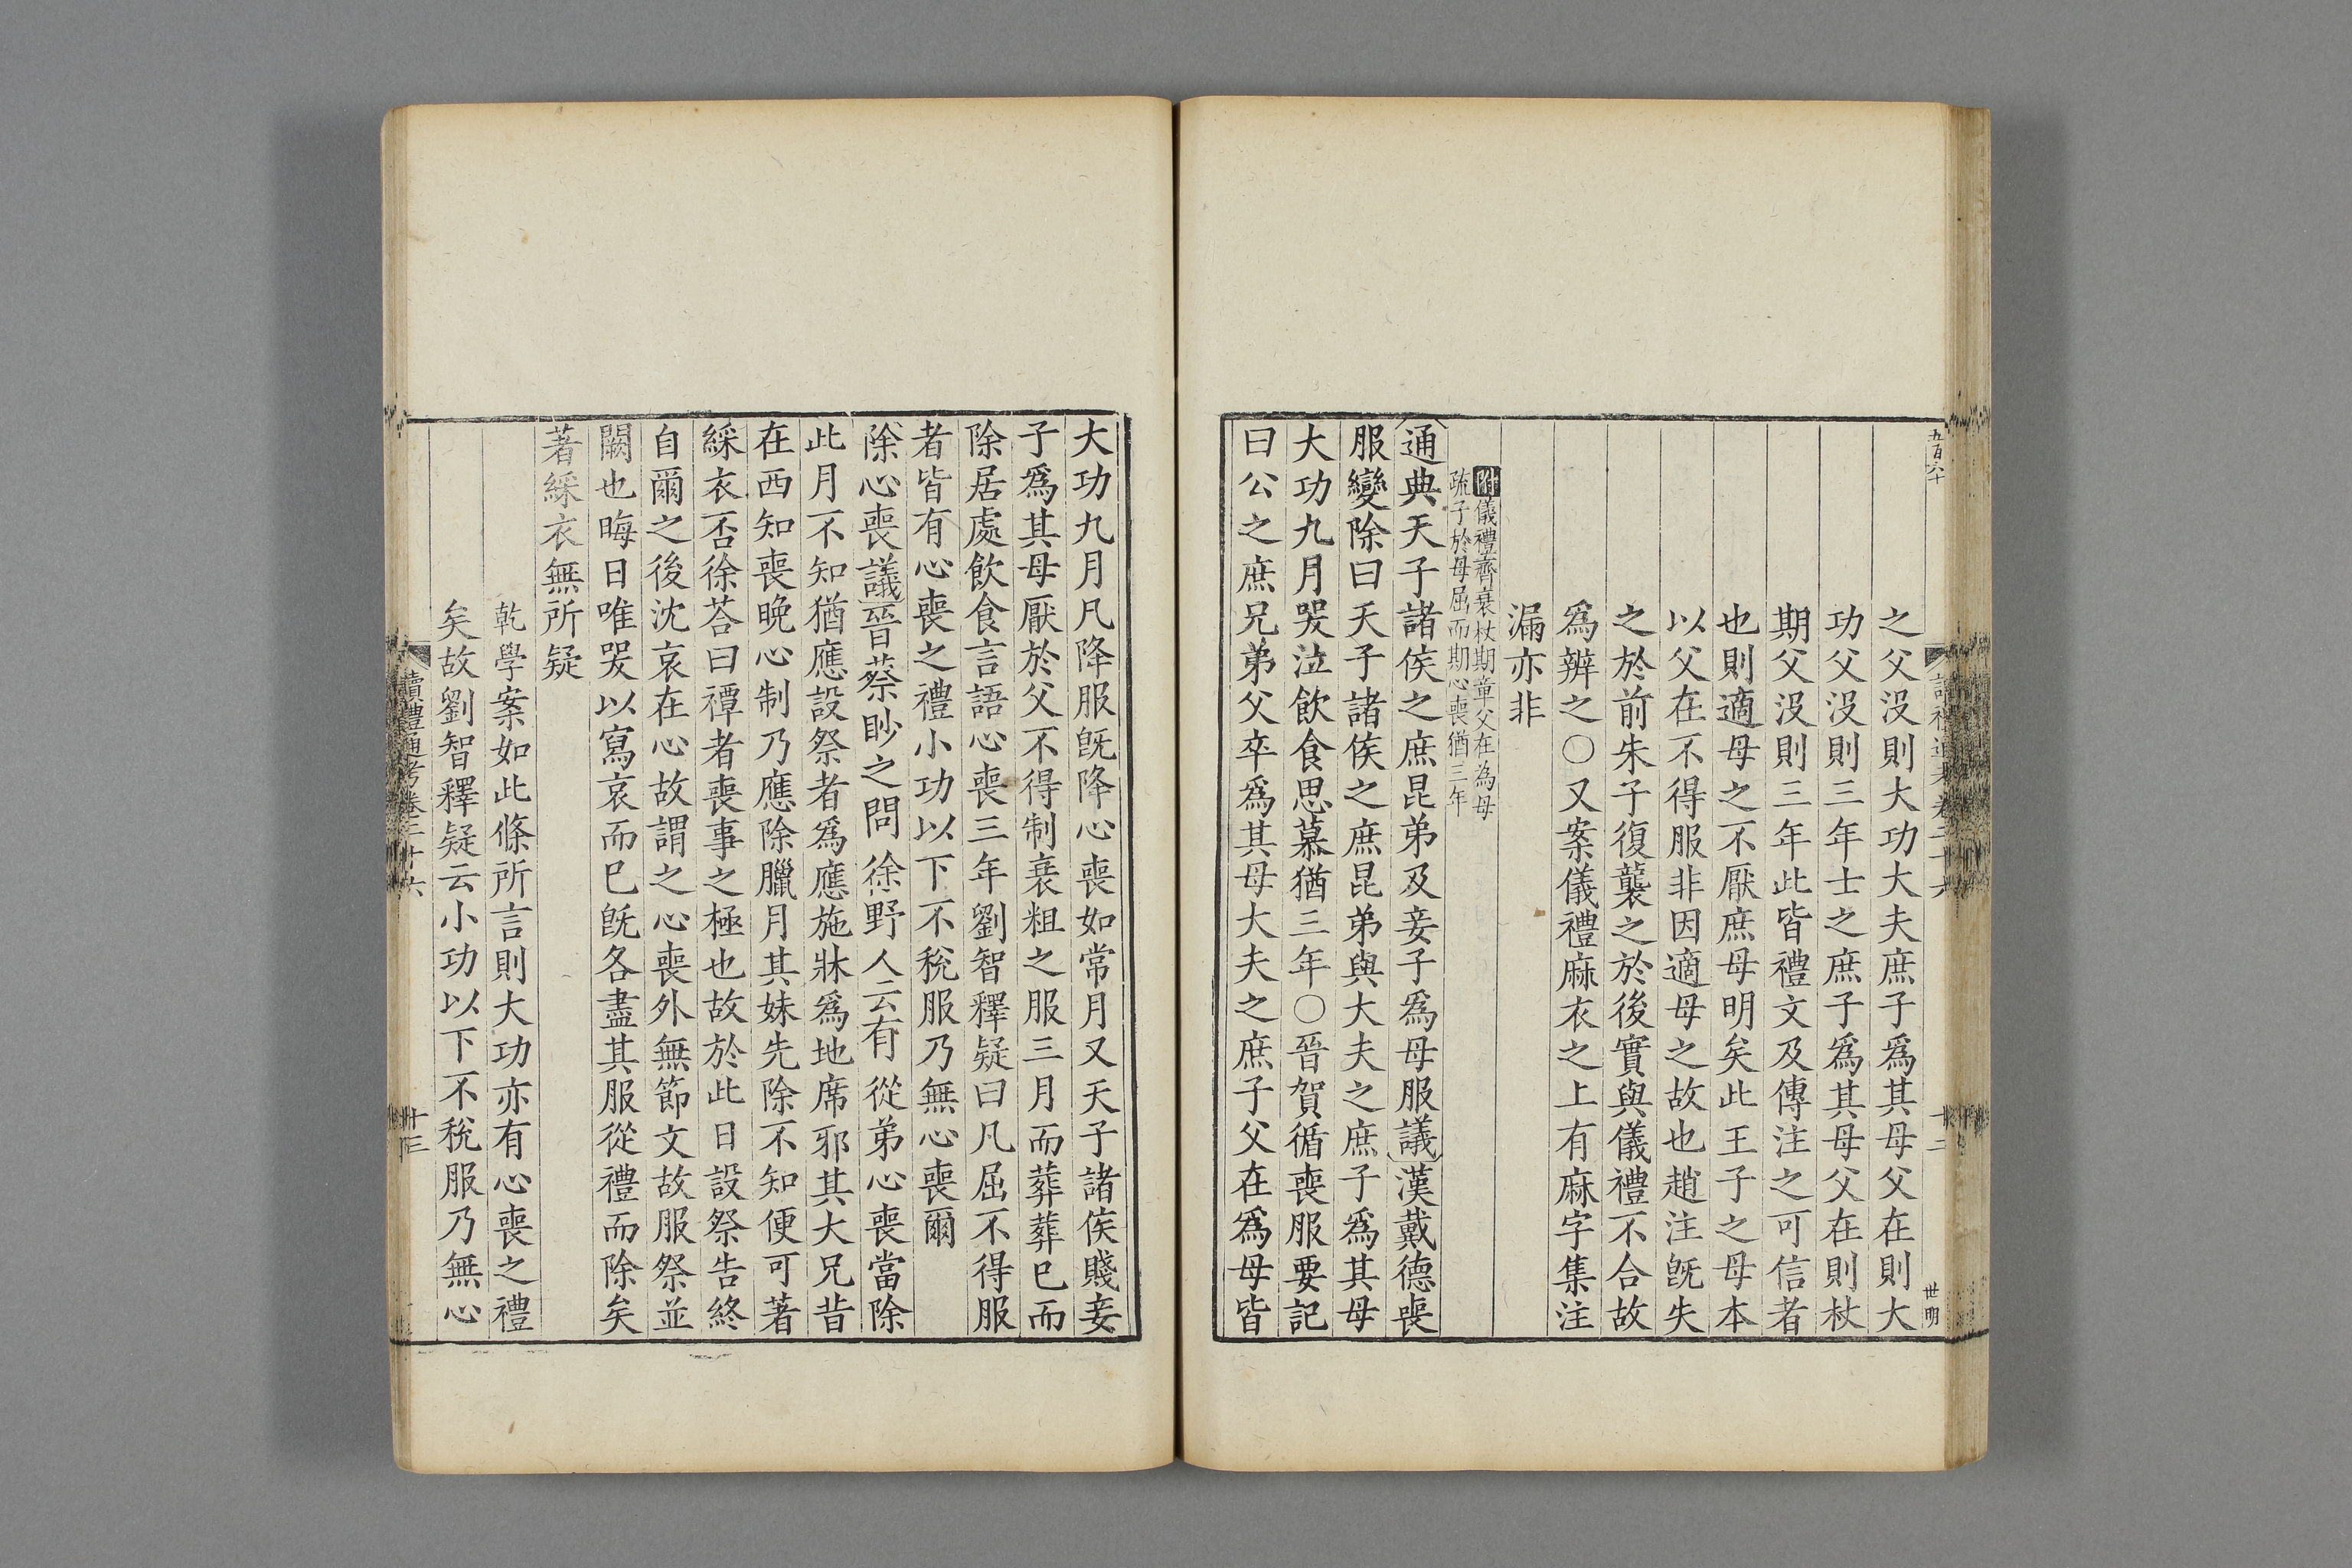 五百六十
讀禮通考卷二十六
十二
世明
之父没則大功大夫庶子爲其母父在則大
功父没則三年士之庶子爲其母父在則杖
期父没則三年此皆禮文及傳注之可信者
也則適母之不厭庶母明矣此王子之母本
以父在不得服非因適母之故也趙注旣失
之於前朱子復襲之於後實與儀禮不合故
爲辨之〇又案儀禮麻衣之上有麻字集注
漏亦非
附儀禮齊衰杖期章父在為母
疏子於母屈而期心喪猶三年
通典天子諸侯之庶昆弟及妾子爲母服議漢戴德喪
服變除曰天子諸侯之庶昆弟與大夫之庶子爲其母
大功九月哭泣飲食思慕猶三年〇晉賀循喪服要記
曰公之庶兄弟父卒爲其母大夫之庶子父在爲母皆
大功九月凡降服旣降心喪如常月又天子諸侯賤妾
子爲其母厭於父不得制衰粗之服三月而葬葬已而
除居處飲食言語心喪三年劉智釋疑曰凡屈不得服
者皆有心喪之禮小功以下不稅服乃無心喪爾
除心喪議晉蔡眇之問徐野人云有從弟心喪當除
此月不知猶應設祭者爲應施牀爲地席邪其大兄昔
在西知喪晚心制乃應除臘月其妹先除不知便可著
綵衣否徐荅曰禫者喪事之極也故於此日設祭告終
自爾之後沈哀在心故謂之心喪外無節文故服祭並
闕也晦日唯哭以寫哀而已旣各盡其服從禮而除矣
著綵衣無所疑
乾學案如此條所言則大功亦有心喪之禮
矣故劉智釋疑云小功以下不稅服乃無心
讀禮通考卷二十六
十三